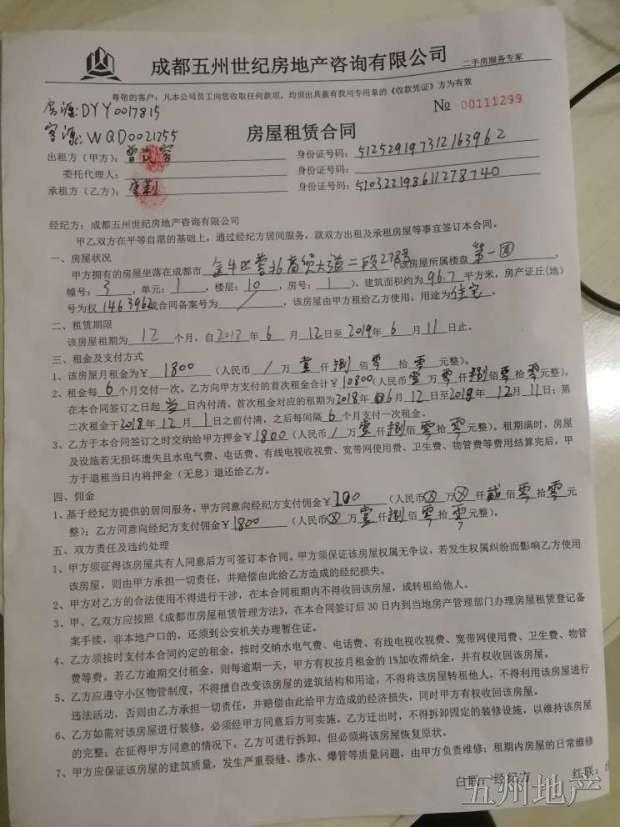 成都五州世纪房地产咨询有限公司 二手房服务专家
尊敬的客户：凡本公司员工向您收取任何款项，均须出具盖有我司专用章的《收款凭证》方为有效
房源:DYY0017815
№ 00111299
客源:WQD0021255
房屋租赁合同
出租方（甲方）： 身份证号码：512529197312163962
委托代理人： 身份证号码：
承租方（乙方）： 身份证号码：510322198611278740
经纪方：成都五州世纪房地产咨询有限公司
甲乙双方在平等自愿的基础上，通过经纪方居间服务，就双方出租及承租房屋等事宜签订本合同。
一、房屋状况
甲方拥有的房屋坐落在成都市 金牛区营北商贸大道二段278号 该房屋所属楼盘 第一园
幢号：3，单元：1，楼层：10，房号：1），建筑面积约为96.7平方米，房产证丘(地)
号为权1463962或合同备案号为 / ，该房屋由甲方租给乙方使用，用途为住宅。
二、租赁期限
该房屋租期为 12 个月，自2018年6月12日至2019年6月11日止。
三、租金及支付方式
1、该房屋月租金为￥1800（人民币/万壹仟捌佰零拾零元整）。
2、租金每6个月交付一次。乙方向甲方支付的首次租金合计￥10800(人民币壹万零仟捌佰零拾零元整)，
在本合同签订之日起当日内付清，首次租金对应的租期为2018年06月12日至2018年12月11日；第
二次租金于2018年12月1日之前付清，之后每间隔6个月支付一次租金。
3、乙方于本合同签订之时交纳给甲方押金￥1800(人民币/万壹仟捌佰零拾零元整)。租期满时，房屋
及设施若无损坏遗失且水电气费、电话费、有线电视收视费、宽带网使用费、卫生费、物管费等费用结算完后，甲
方于退租当日内将押金（无息）退还给乙方。
四、佣金
1、基于经纪方提供的居间服务，甲方同意向经纪方支付佣金￥200（人民币⊗万⊗仟贰佰零拾零元
整）；乙方同意向经纪方支付佣金￥1800（人民币⊗万壹仟捌佰零拾零元整）。
五、双方责任及违约处理
1、甲方须征得该房屋共有人同意后方可签订本合同。甲方须保证该房屋权属无争议，若发生权属纠纷而影响乙方使用
该房屋，则由甲方承担一切责任，并赔偿由此给乙方造成的经纪损失。
2、甲方对乙方的合法使用不得进行干涉，在本合同租期内不得收回该房屋，或转租给他人。
3、甲、乙双方应按照《成都市房屋租赁管理方法》，在本合同签订后30日内到当地房产管理部门办理房屋租赁登记备
案手续，非本地户口的，还须到公安机关办理暂住证。
4、乙方须按时支付本合同约定的租金，按时交纳水电气费、电话费、有线电视收视费、宽带网使用费、卫生费、物管
费等费。若乙方逾期交付租金，则每逾期一天，甲方有权按月租金的1%加收滞纳金，并有权收回该房屋。
5、乙方应遵守小区物管制度，不得擅自改变该房屋的建筑结构和用途，不得将该房屋转租他人，不得利用该房屋进行
违法活动，否则由乙方承担一切责任，并赔偿由此给甲方造成的经济损失，同时甲方有权收回该房屋。
6、乙方如需对该房屋进行装修，必须经甲方同意后方可实施。乙方迁出时，不得拆卸固定的装修设施，以维持该房屋
的完整；在征得甲方同意的情况下，乙方可进行拆卸，但必须将该房屋恢复原状。
7、甲方应保证该房屋的建筑质量，发生严重裂缝、渗水、爆管等质量问题，由甲方负责维修；租期内房屋的日常维修
白联：经纪方 红联：
五州地产